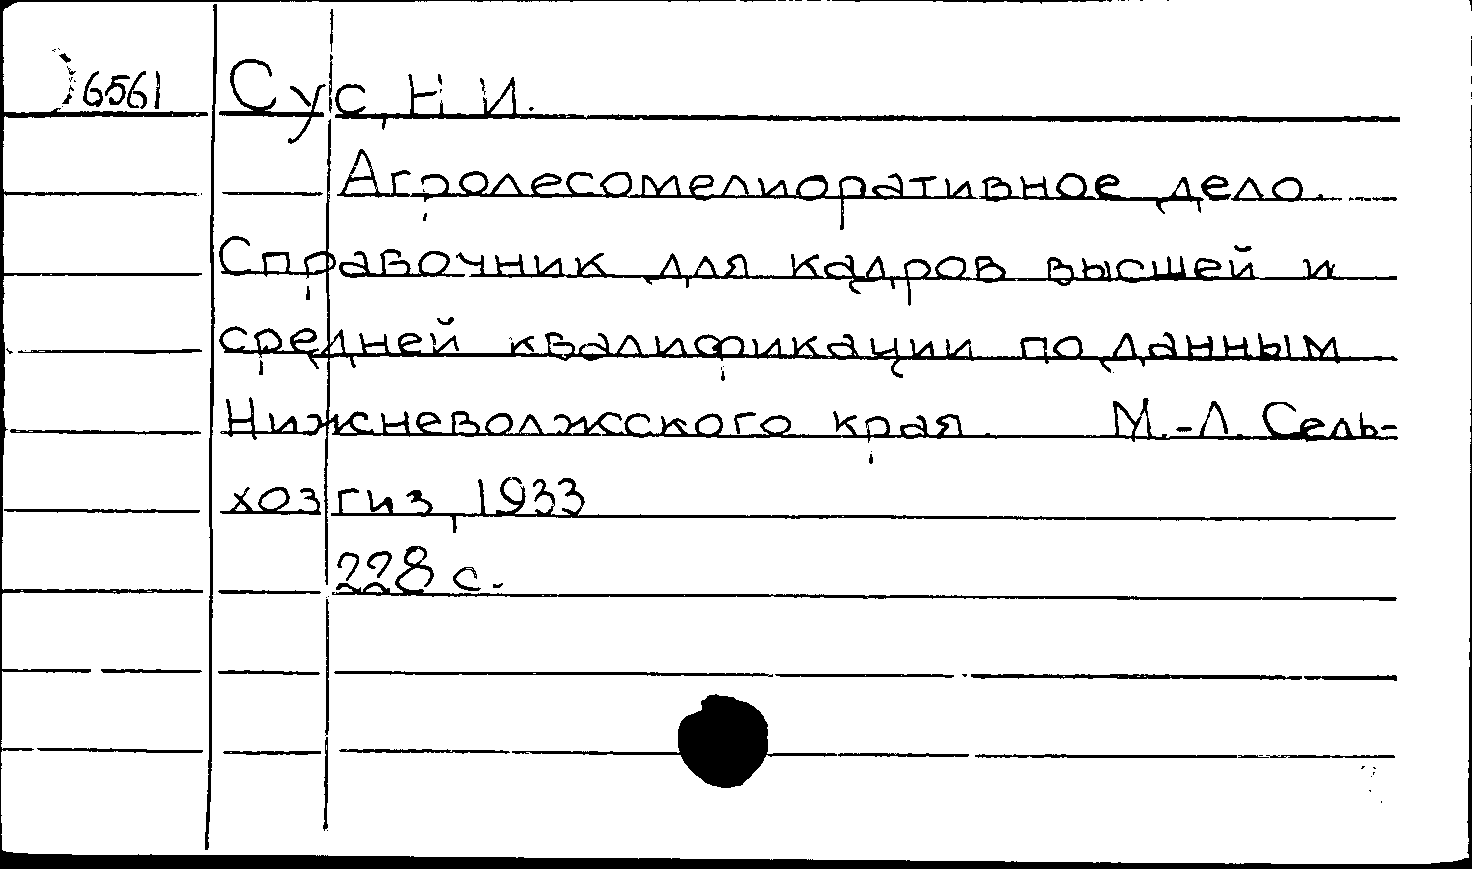 6561 Сус, Н. И.
Агролесомелиоративное дело.
Справочник для кадров высшей и
средней квалификации по данным
Нижневолжсского края. М.-Л. Сель-
хозгиз, 1933
228 с.